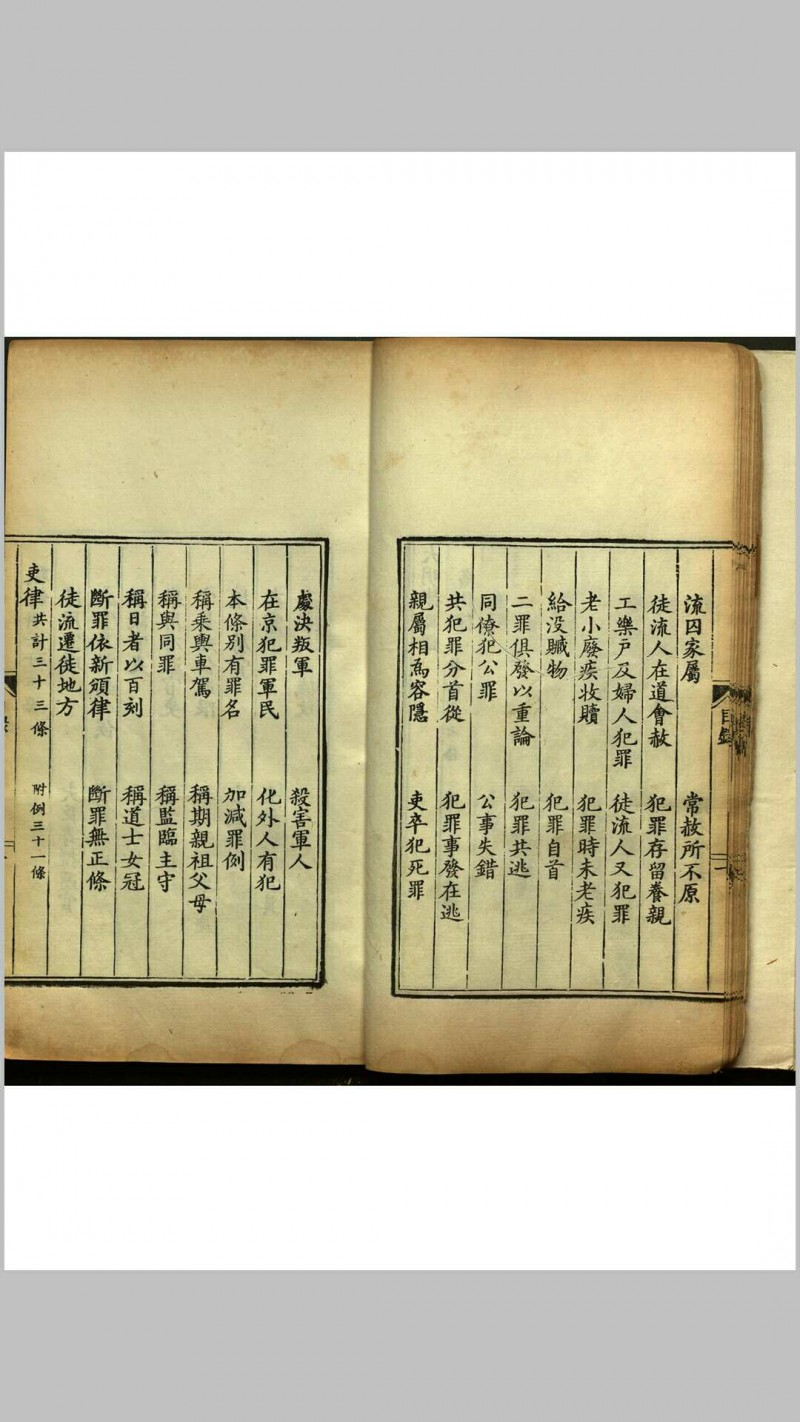 流囚家屬　常赦所不原
徒流人在道會赦　犯罪存留養親
工樂户及婦人犯罪　徒流人又犯罪
老小廢疾收贖　犯罪時未老疾
給没贓物　犯罪自首
二罪俱發以重論　犯罪共逃
同僚犯公罪　公事失錯
共犯罪分首從　犯罪事發在逃
親屬相為容隱　吏卒犯死罪
處決叛軍　殺害軍人
在京犯罪軍民　化外人有犯
本條别有罪名　加減罪例
稱乘輿車駕　稱期親祖父母
稱與同罪　稱監臨主守
稱日者以百刻　稱道士女冠
斷罪依新頒律　斷罪無正條
徒流遷徙地方
吏律共計三十三條　附例三十一條
目錄